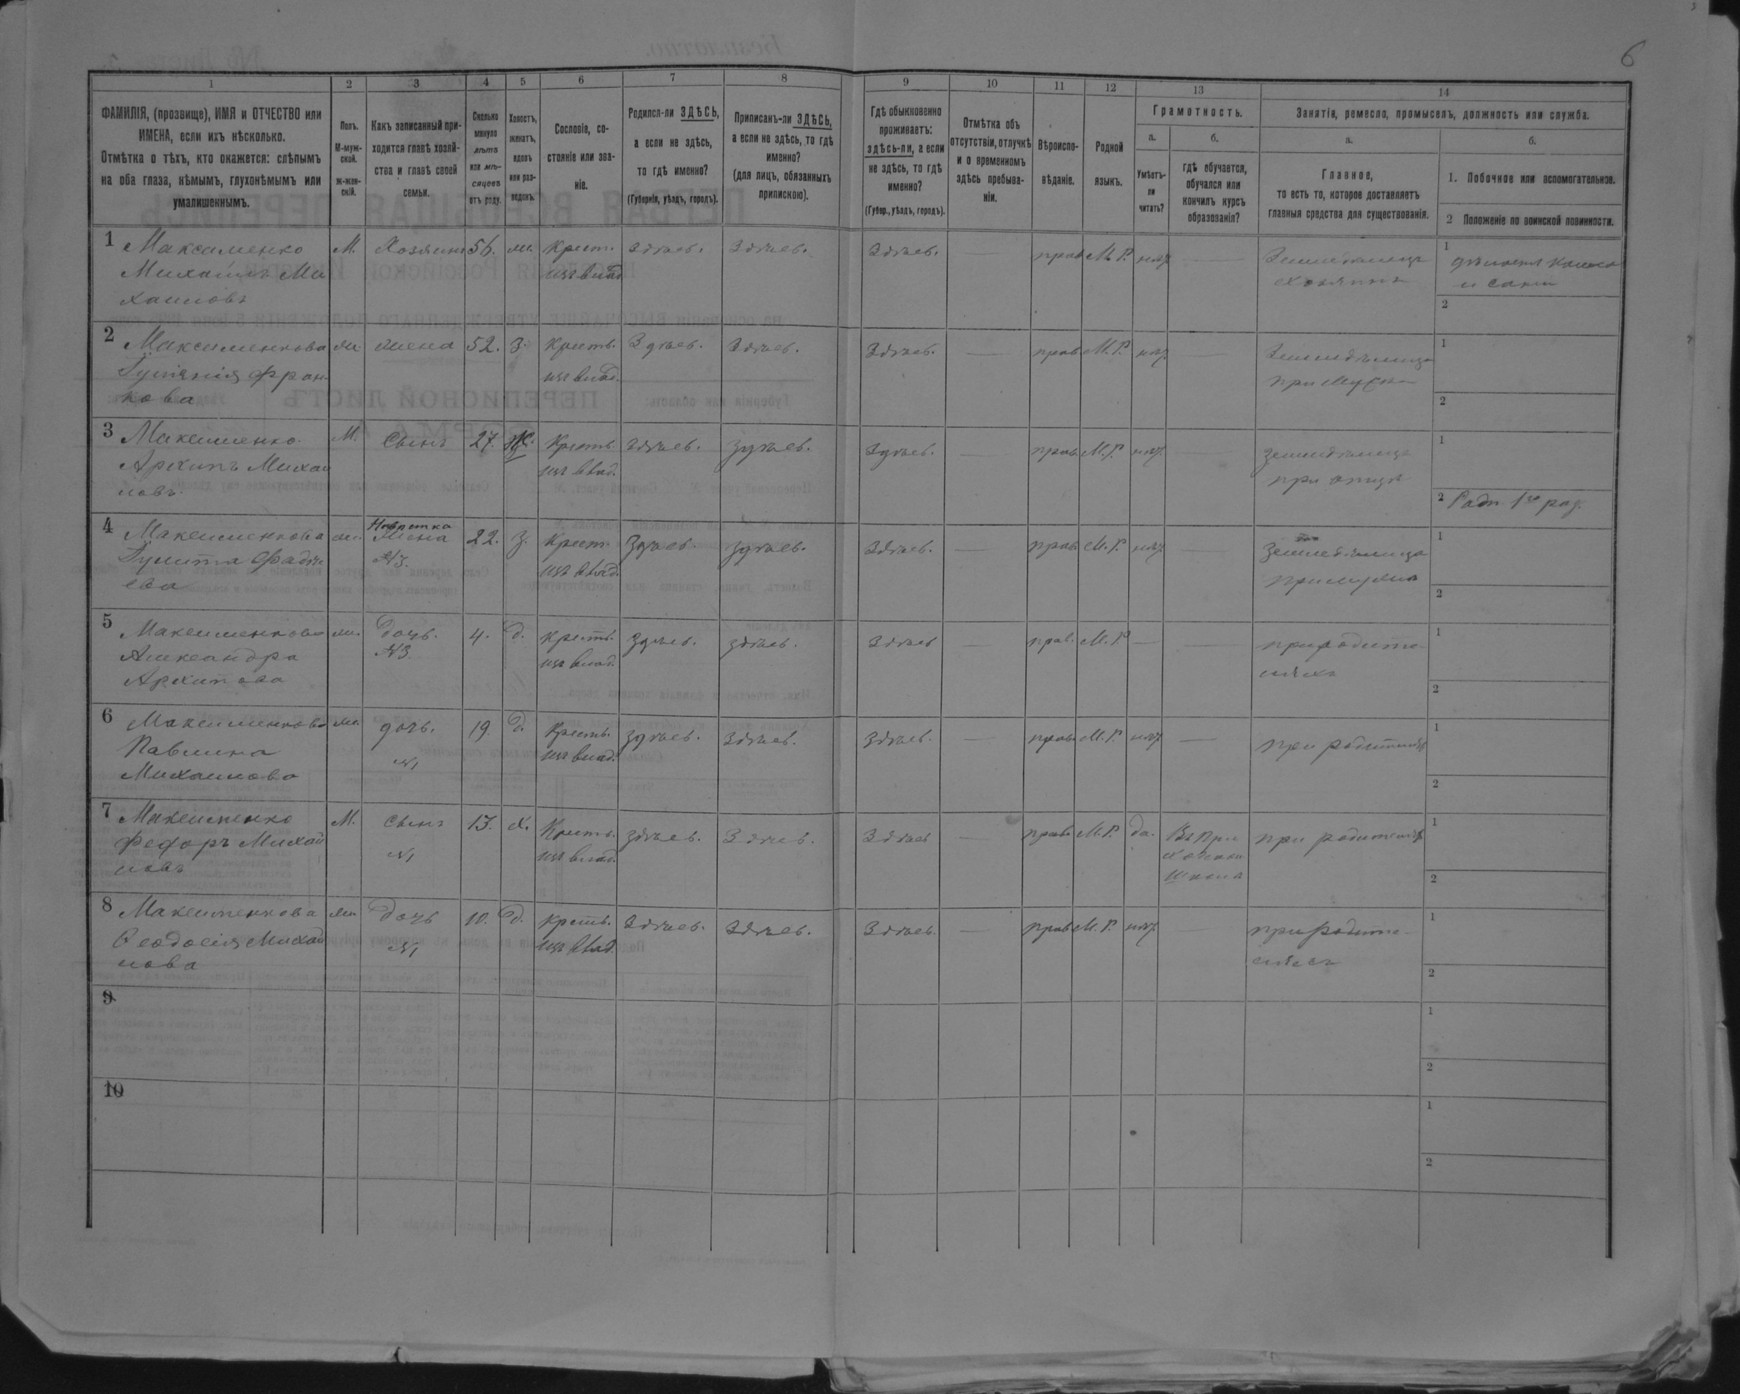 6
1 2 3 4 5 6 7 8 9 10 11 12 13 14
ФАМИЛІЯ, (прозвище), ИМЯ и ОТЧЕСТВО или
ИМЕНА, если ихъ нѣсколько.
Отмѣтка о тѣхъ, кто окажется: слѣпымъ
на оба глаза, нѣмымъ, глухонѣмымъ или
умалишеннымъ.
Полъ.
М-муж-
ской.
ж-жен-
скій.
Какъ записанный при-
ходится главѣ хозяй-
ства и главѣ своей
семьи.
Сколько
минуло
лѣтъ
или мѣ-
сяцевъ
отъ роду.
Холостъ,
женатъ,
вдовъ
или раз-
веденъ.
Сословіе, со-
стояніе или зва-
ніе.
Родился-ли ЗДѢСЬ,
а если не здѣсь,
то гдѣ именно?
(Губернія, уѣздъ, городъ).
Приписанъ-ли ЗДѢСЬ,
а если не здѣсь, то гдѣ
именно?
(для лицъ, обязанныхъ
припискою).
Гдѣ обыкновенно
проживаетъ:
здѣсь-ли, а если
не здѣсь, то гдѣ
именно?
(Губер., уѣздъ, городъ).
Отмѣтка объ
отсутствіи, отлучкѣ
и о временномъ
здѣсь пребыва-
ніи.
Вѣроиспо-
вѣданіе.
Родной
языкъ.
Грамотность.
а.
Умѣетъ-
ли
читать?
б.
гдѣ обучается,
обучался или
кончилъ курсъ
образованія?
Занятіе, ремесло, промыселъ, должность или служба.
а.
Главное,
то есть то, которое доставляетъ
главныя средства для существованія.
б.
1. Побочное или вспомогательное.
2 Положеніе по воинской повинности.
1 Максименко
Михаилъ Ми
хаиловъ
М. Хозяинъ 56. ж. Крест. здѣсь. Здѣсь. Здѣсь. — прав М.Р. нѣт —
изъ влад.
1
и сани
2
2 Максименкова
ова
ж жена 52. З. Крестъ. Здѣсь. Здѣсь. Здѣсь. — прав М.Р. нѣт —
изъ влад.
при мужѣ
1
2
3 Максименко
Архипъ Михаи
ловъ
М. Сынъ 27. Ж. Крестъ. здѣсь. здѣсь. Здѣсь. — прав М.Р. нѣт —
изъ влад.
при отцѣ
1
2 Ратн. 1го раз.
4 Максименкова
Невѣстка
Жена
N3.
ж. 22. З. Крест. Здѣсь. здѣсь. Здѣсь. — прав. М.Р. нѣт —
изъ влад.
при мужѣ
1
2
5 Максименкова
Александра
Архипова
ж. Дочь. 4. д. Крестъ. Здѣсь. здѣсь. Здѣсь — прав. М.Р. — —
N3. изъ влад.
при родите-
ляхъ
1
2
6 Максименкова
Павлина
Михаилова
ж. дочь. 19 д. Крестъ. здѣсь. здѣсь. здѣсь. — прав. М.Р. нѣт —
N1 изъ влад.
1
2
7 Максименко
Федоръ Михаи
ловъ
М. Сынъ 13. х. Крестъ. здѣсь. Здѣсь. Здѣсь — прав. М.Р. да.
N1 изъ влад.
1
2
8 Максименкова
Феодосія Михаи
лова
ж Дочь 10. д. Крестъ. Здѣсь. Здѣсь. Здѣсь — прав М.Р. нѣт —
N1 изъ влад.
при родите-
ляхъ
1
2
9
1
2
10
1
2